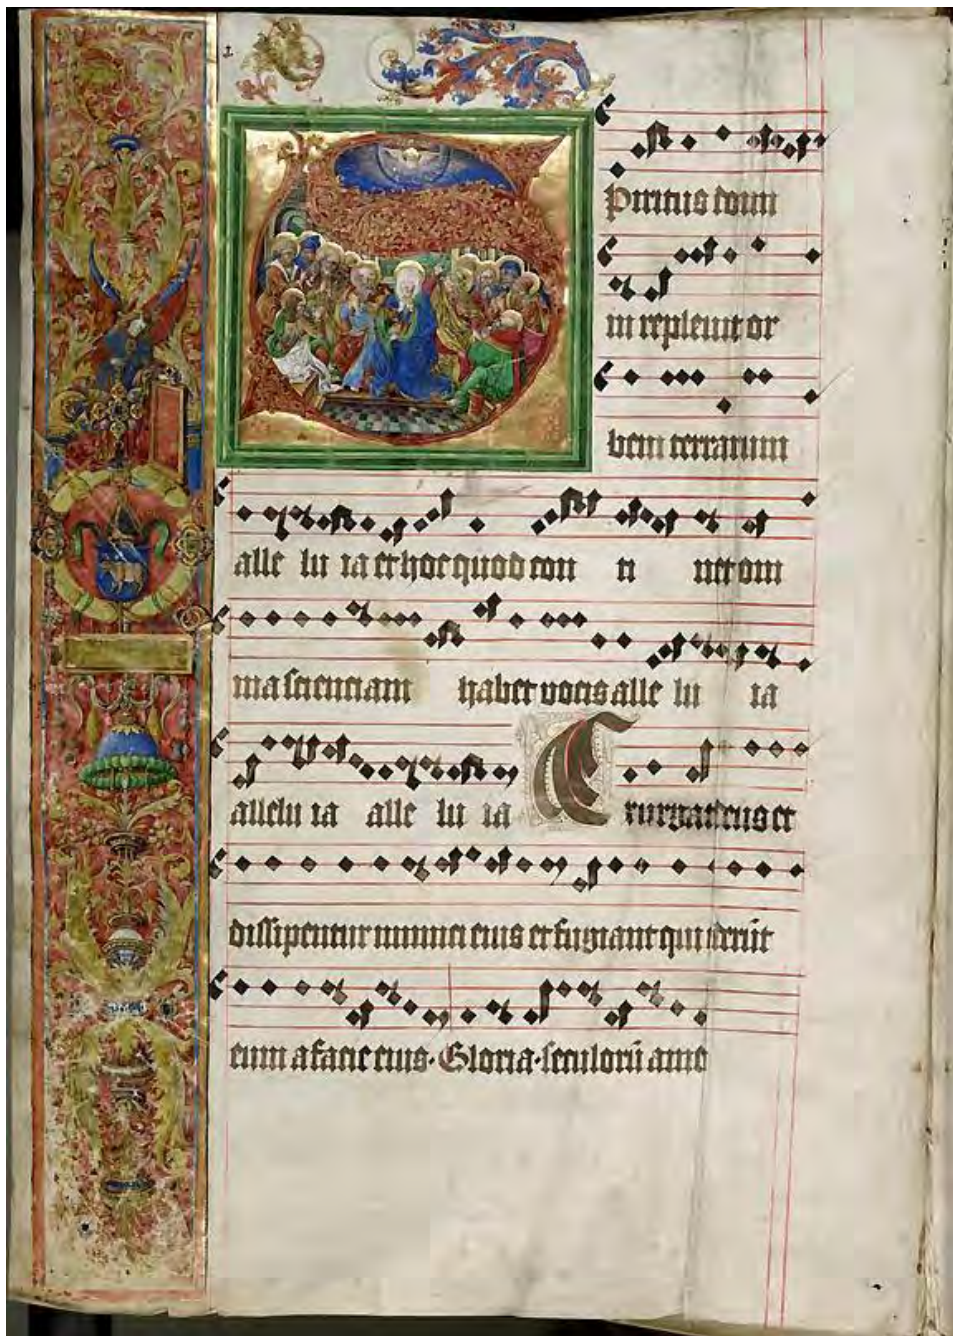 Spiritus domi
ni repleuit or
bem terrarum
alle lu ia et hoc quod con ti net om
nia scienciam habet vocis alle lu ia
allelu ia alle lu ia Exurgat deus et
dissipentur inimici eius et fugiant qui oderūt
eum a facie eius · Gloria · seculorū ame